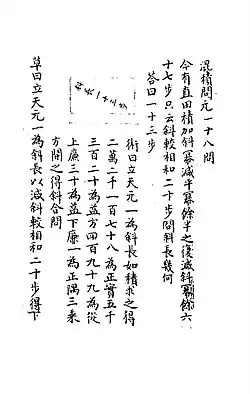 混積問元一十八問
今有直田積加斜冪減平冪餘半之復減斜冪餘六
十七步只云斜較相和二十步問斜長幾何
荅曰一十三步
斜長一十三步
術曰立天元一為斜長如積求之得
二萬二千一百七十八為正實五千
三百二十為益方四百九十九為從
上廉三十為益下廉一為正隅三乘
方開之得斜合問
草曰立天元一為斜長以減斜較相和二十步得下